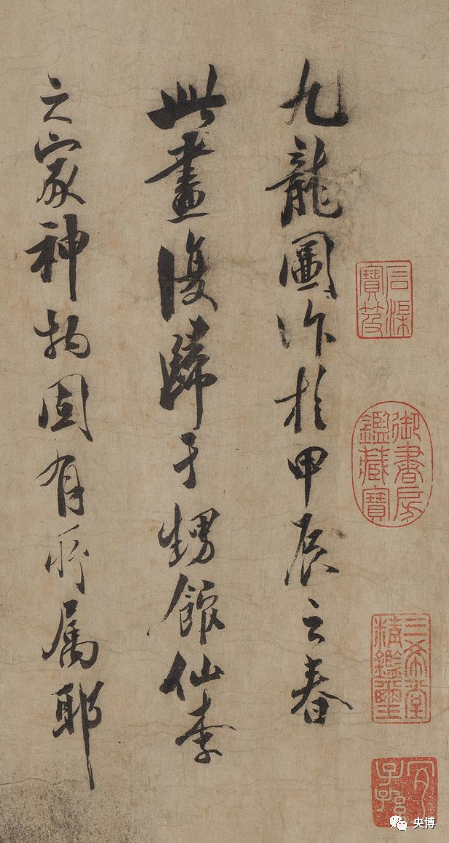 九龍圖作於甲辰之春
此畫復歸于甥館仙李
之家神物固有所属耶
石渠寶笈
御書房鑑藏寶
三希堂精鑑璽
宜子孫
央博